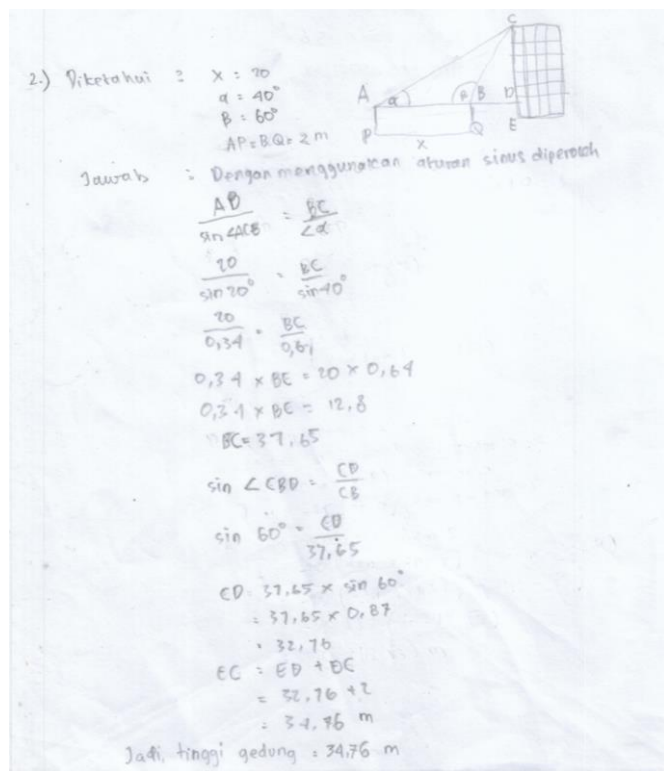 2.) Diketahui : x = 20
α = 40°
β = 60°
AP = BQ = 2 m
C
A α β B D
P x Q E
Jawab : Dengan menggunakan aturan sinus diperoleh
AB / sin ∠ACB = BC / ∠α
20 / sin 20° = BC / sin 40°
20 / 0,34 = BC / 0,64
0,34 x BC = 20 x 0,64
0,34 x BC = 12,8
BC = 37,65
sin ∠CBD = CD / CB
sin 60° = CD / 37,65
CD = 37,65 x sin 60°
= 37,65 x 0,87
= 32,76
EC = ED + DC
= 32,76 + 2
= 34,76 m
Jadi, tinggi gedung = 34,76 m